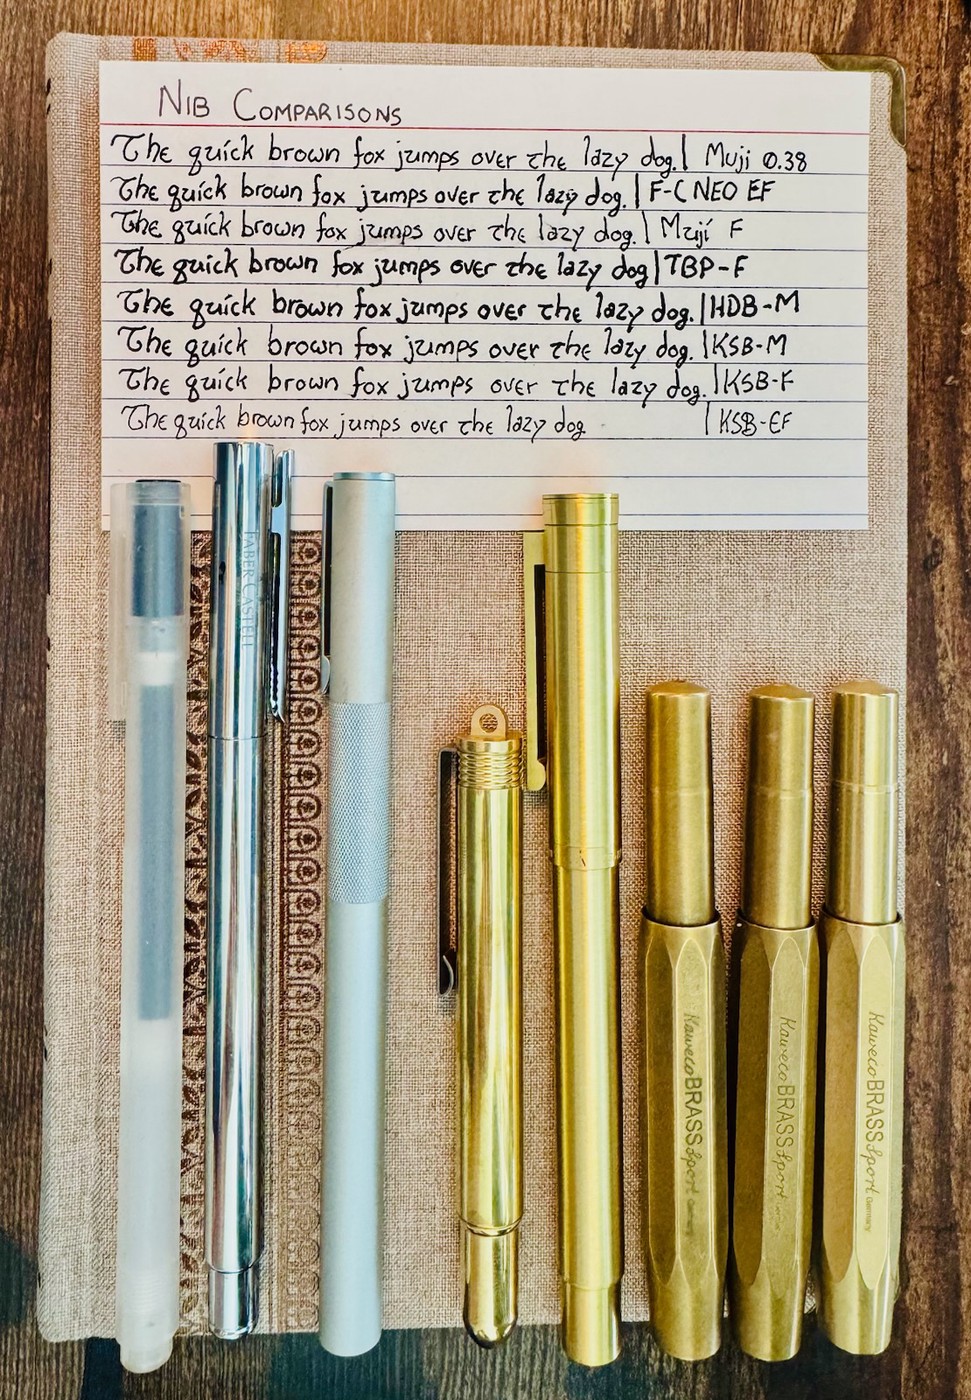 NIB COMPARISONS
The quick brown fox jumps over the lazy dog. | Muji 0.38
The quick brown fox jumps over the lazy dog. | F-C NEO EF
The quick brown fox jumps over the lazy dog. | Muji F
The quick brown fox jumps over the lazy dog | TBP-F
The quick brown fox jumps over the lazy dog. | HDB-M
The quick brown fox jumps over the lazy dog. | KSB-M
The quick brown fox jumps over the lazy dog. | KSB-F
The quick brown fox jumps over the lazy dog. | KSB-EF
FABER-CASTELL
Kaweco BRASS Sport Germany
Kaweco BRASS Sport
Kaweco BRASS Sport Germany